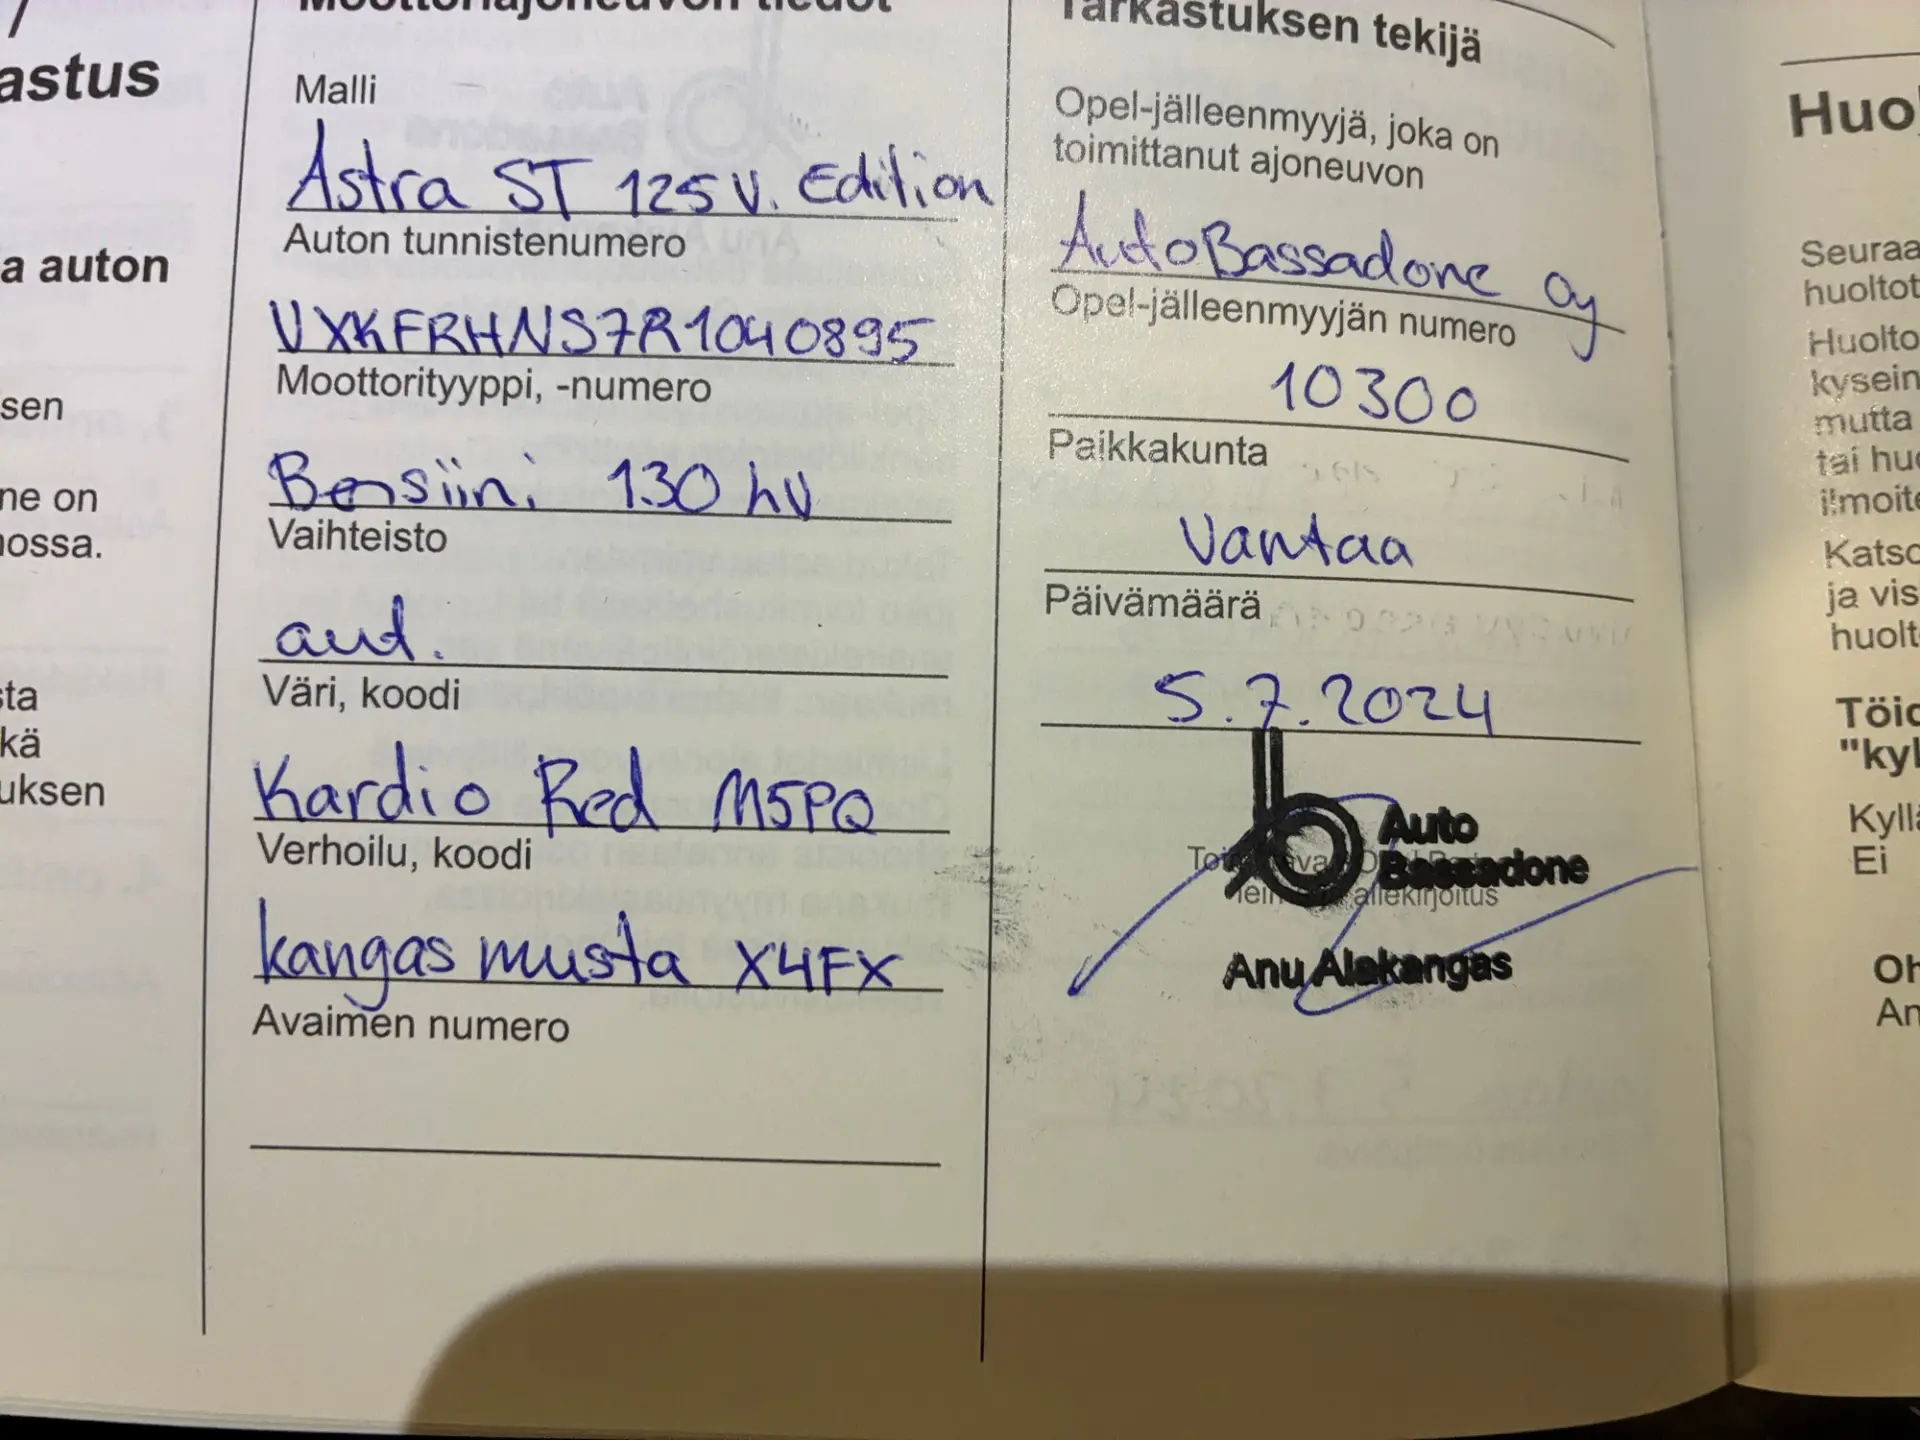 astus
a auton
sen
ne on
ossa.
sta
kä
uksen
Malli
Astra ST 125 V. Edition
Auton tunnistenumero
VXKFRHNS7R1040895
Moottorityyppi, -numero
Bensiini 130 hv
Vaihteisto
aut.
Väri, koodi
Kardio Red M5PQ
Verhoilu, koodi
kangas musta X4FX
Avaimen numero
Tarkastuksen tekijä
Opel-jälleenmyyjä, joka on
toimittanut ajoneuvon
AutoBassadone Oy
Opel-jälleenmyyjän numero
10300
Paikkakunta
Vantaa
Päivämäärä
5.7.2024
Auto
Bassadone
allekirjoitus
Anu Alakangas
Huol
Seuraa
huoltot
Huolto
kysein
mutta
tai huo
ilmoite
Katso
ja vis
huolt
Töid
"kyl
Kyllä
Ei
Oh
An